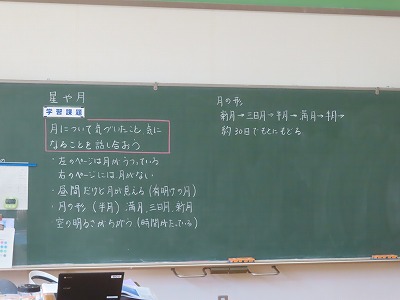 星や月
学習課題
月について気づいたこと、気に
なることを話し合おう
・左のページは月がうつっている
右のページには月がない
・昼間だけど月が見える(有明けの月)
・月の形 (半月)、満月、三日月、新月
空の明るさがちがう(時間がたっている)
月の形
新月→三日月→半月→満月→半月→
約30日でもとにもどる